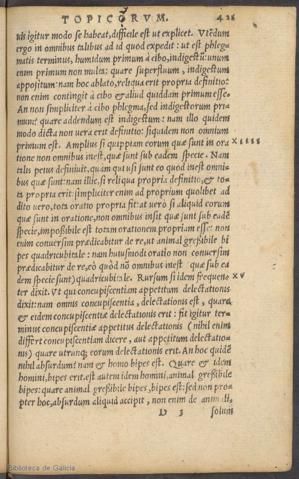 TOPICORVM. 428
uis igitur modo se habeat, difficile est ut explicet. Videndum
ergo in omnibus talibus ad id quod expedit: ut est phlegmatis
terminus, humidum primum à cibo, indigestũ: unum
enim primum non multa: quare superfluum, indigestum
appositum: nam hoc ablato, reliqua erit propria definitio:
non enim contingit à cibo & aliud quiddam primum esse.
An non simpliciter à cibo phlegma, sed indigestorum primum?
quare addendum est indigestum: nam illo quidem
modo dicta non vera erit definitio: siquidem non omnium
primum est. Amplius si quippiam eorum quæ sunt in ora- XIIII
tione non omnibus inest, quæ sunt sub eadem specie. Nam
talis peius definiuit, quàm qui
bus quæ sunt: nam illic, si reliqua propria definitio, & tota
propria erit: simpliciter enim ad proprium quolibet addito
vero, tota oratio propria fit: at verò si aliquid eorum
quæ sunt in oratione, non omnibus insit quæ sunt sub eadē
specie, impoßibile est totam orationem propriam esse: non
enim conuersim prædicabitur de re, ut animal greßibile bipes
quadricubitale: nam huiusmodi oratio non conuersim
prædicabitur de re, eò quòd nõ omnibus inest quæ sub eadem
specie sunt) quadricubitale. Rursum si idem frequenter XV
dixit. Vt qui concupiscentiam appetitum delectationis
dixit: nam omnis concupiscentia, delectationis est, quare
& eidem concupiscentiæ delectationis erit: fit igitur terminus
concupiscentiæ appetitus delectationis (nihil enim
differt concupiscentiam dicere, aut appetitum delectationis)
quare utrunq; eorum delectationis erit. An hoc quidē
nihil absurdum: nam & homo bipes est. Quare & idem
homini, bipes erit. est autem idem homini, animal greßibile
bipes: quare animal greßibile bipes, bipes est: sed non propter
hoc, absurdum aliquid accipit, non enim de animali,
solum
Biblioteca de Galicia